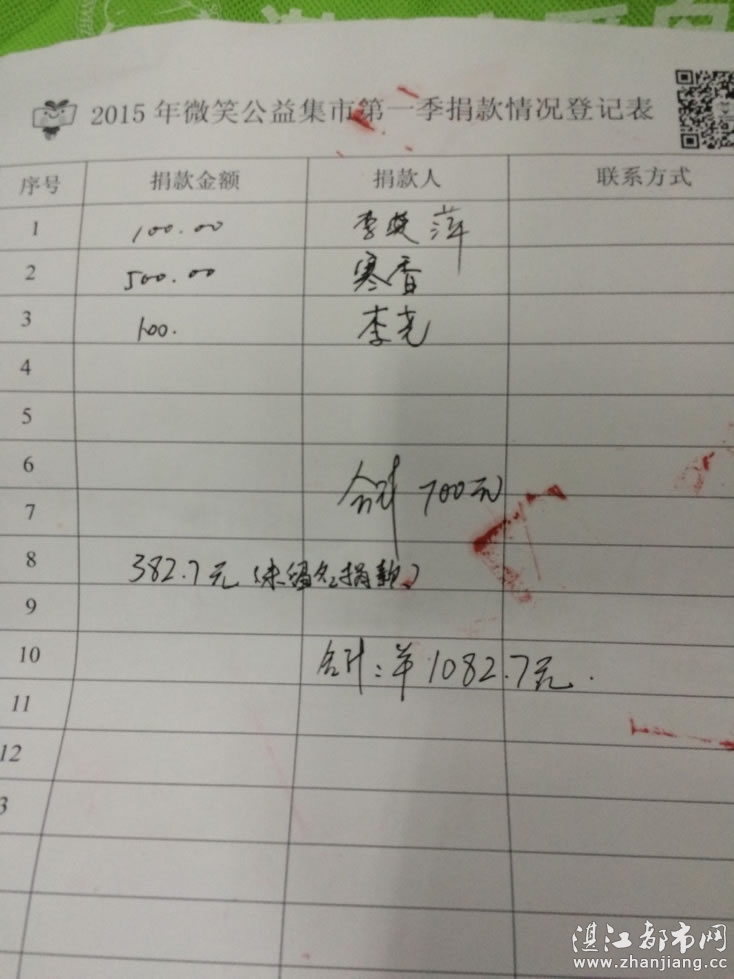 2015年微笑公益集市第一季捐款情况登记表
序号 捐款金额 捐款人 联系方式
1 100.00 李斐萍
2 500.00 寒香
3 100. 李尧
4
5
6
合计 700元
7
8 382.7元（未留名捐款）
9
10 合计：￥1082.7元.
11
12
3
湛江都市网
www.zhanjiang.cc